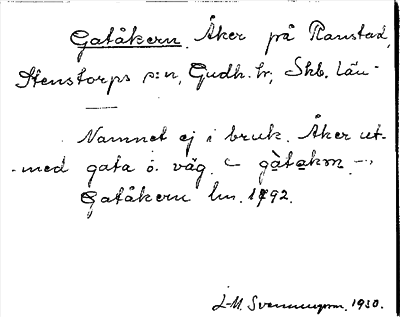 Gatåkern. Åker på Ranstad,
Stenstorps s:n, Gudh. hr, Skb. län.
Namnet ej i bruk. Åker ut-
med gata o. väg.
Gatåkern lm. 1792.
1930.